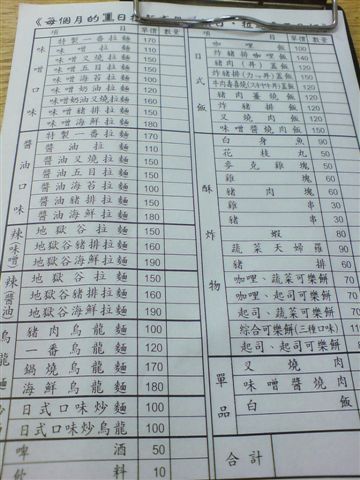 《每個月的
項 目 單價 數量
味噌口味
特製一番拉麵 170
味噌拉麵 110
味噌叉燒拉麵 150
味噌五目拉麵 150
味噌海苔拉麵 100
味噌奶油拉麵 120
味噌奶油叉燒拉麵 160
味噌豬排拉麵 150
味噌海鮮拉麵 180
醬油口味
特製一番拉麵 170
醬油拉麵 110
醬油叉燒拉麵 150
醬油五目拉麵 150
醬油海苔拉麵 100
醬油豬排拉麵 150
醬油海鮮拉麵 180
辣(味噌)
地獄谷拉麵 150
地獄谷豬排拉麵 160
地獄谷海鮮拉麵 190
辣(醬油)
地獄谷拉麵 150
地獄谷豬排拉麵 160
地獄谷海鮮拉麵 190
烏龍麵
豬肉烏龍麵 100
一番烏龍麵 120
鍋燒烏龍麵 150
海鮮烏龍麵 180
日式口味炒麵 100
日式口味炒烏龍 100
啤酒 50
飲料 10
項 目 單價 數量
日式飯
咖哩飯 100
炸豬排咖哩飯 140
豬肉(丼)蓋飯
炸豬排(カツ丼)蓋飯 120
豬肉薑燒飯 120
炸豬排飯 120
叉燒肉飯 120
味噌醬燒肉飯 120
酥炸物
白身魚 90
花枝丸 50
麥克雞塊 50
雞塊 60
豬肉塊 60
雞串 30
豬串 30
蝦 80
蔬菜天婦羅 90
豬排 60
咖哩、蔬菜可樂餅 70
咖哩、起司可樂餅 70
起司、蔬菜可樂餅 70
綜合可樂餅(三種口味)
起司、起司可樂餅
單品
叉燒肉
味噌醬燒肉
白飯
合計